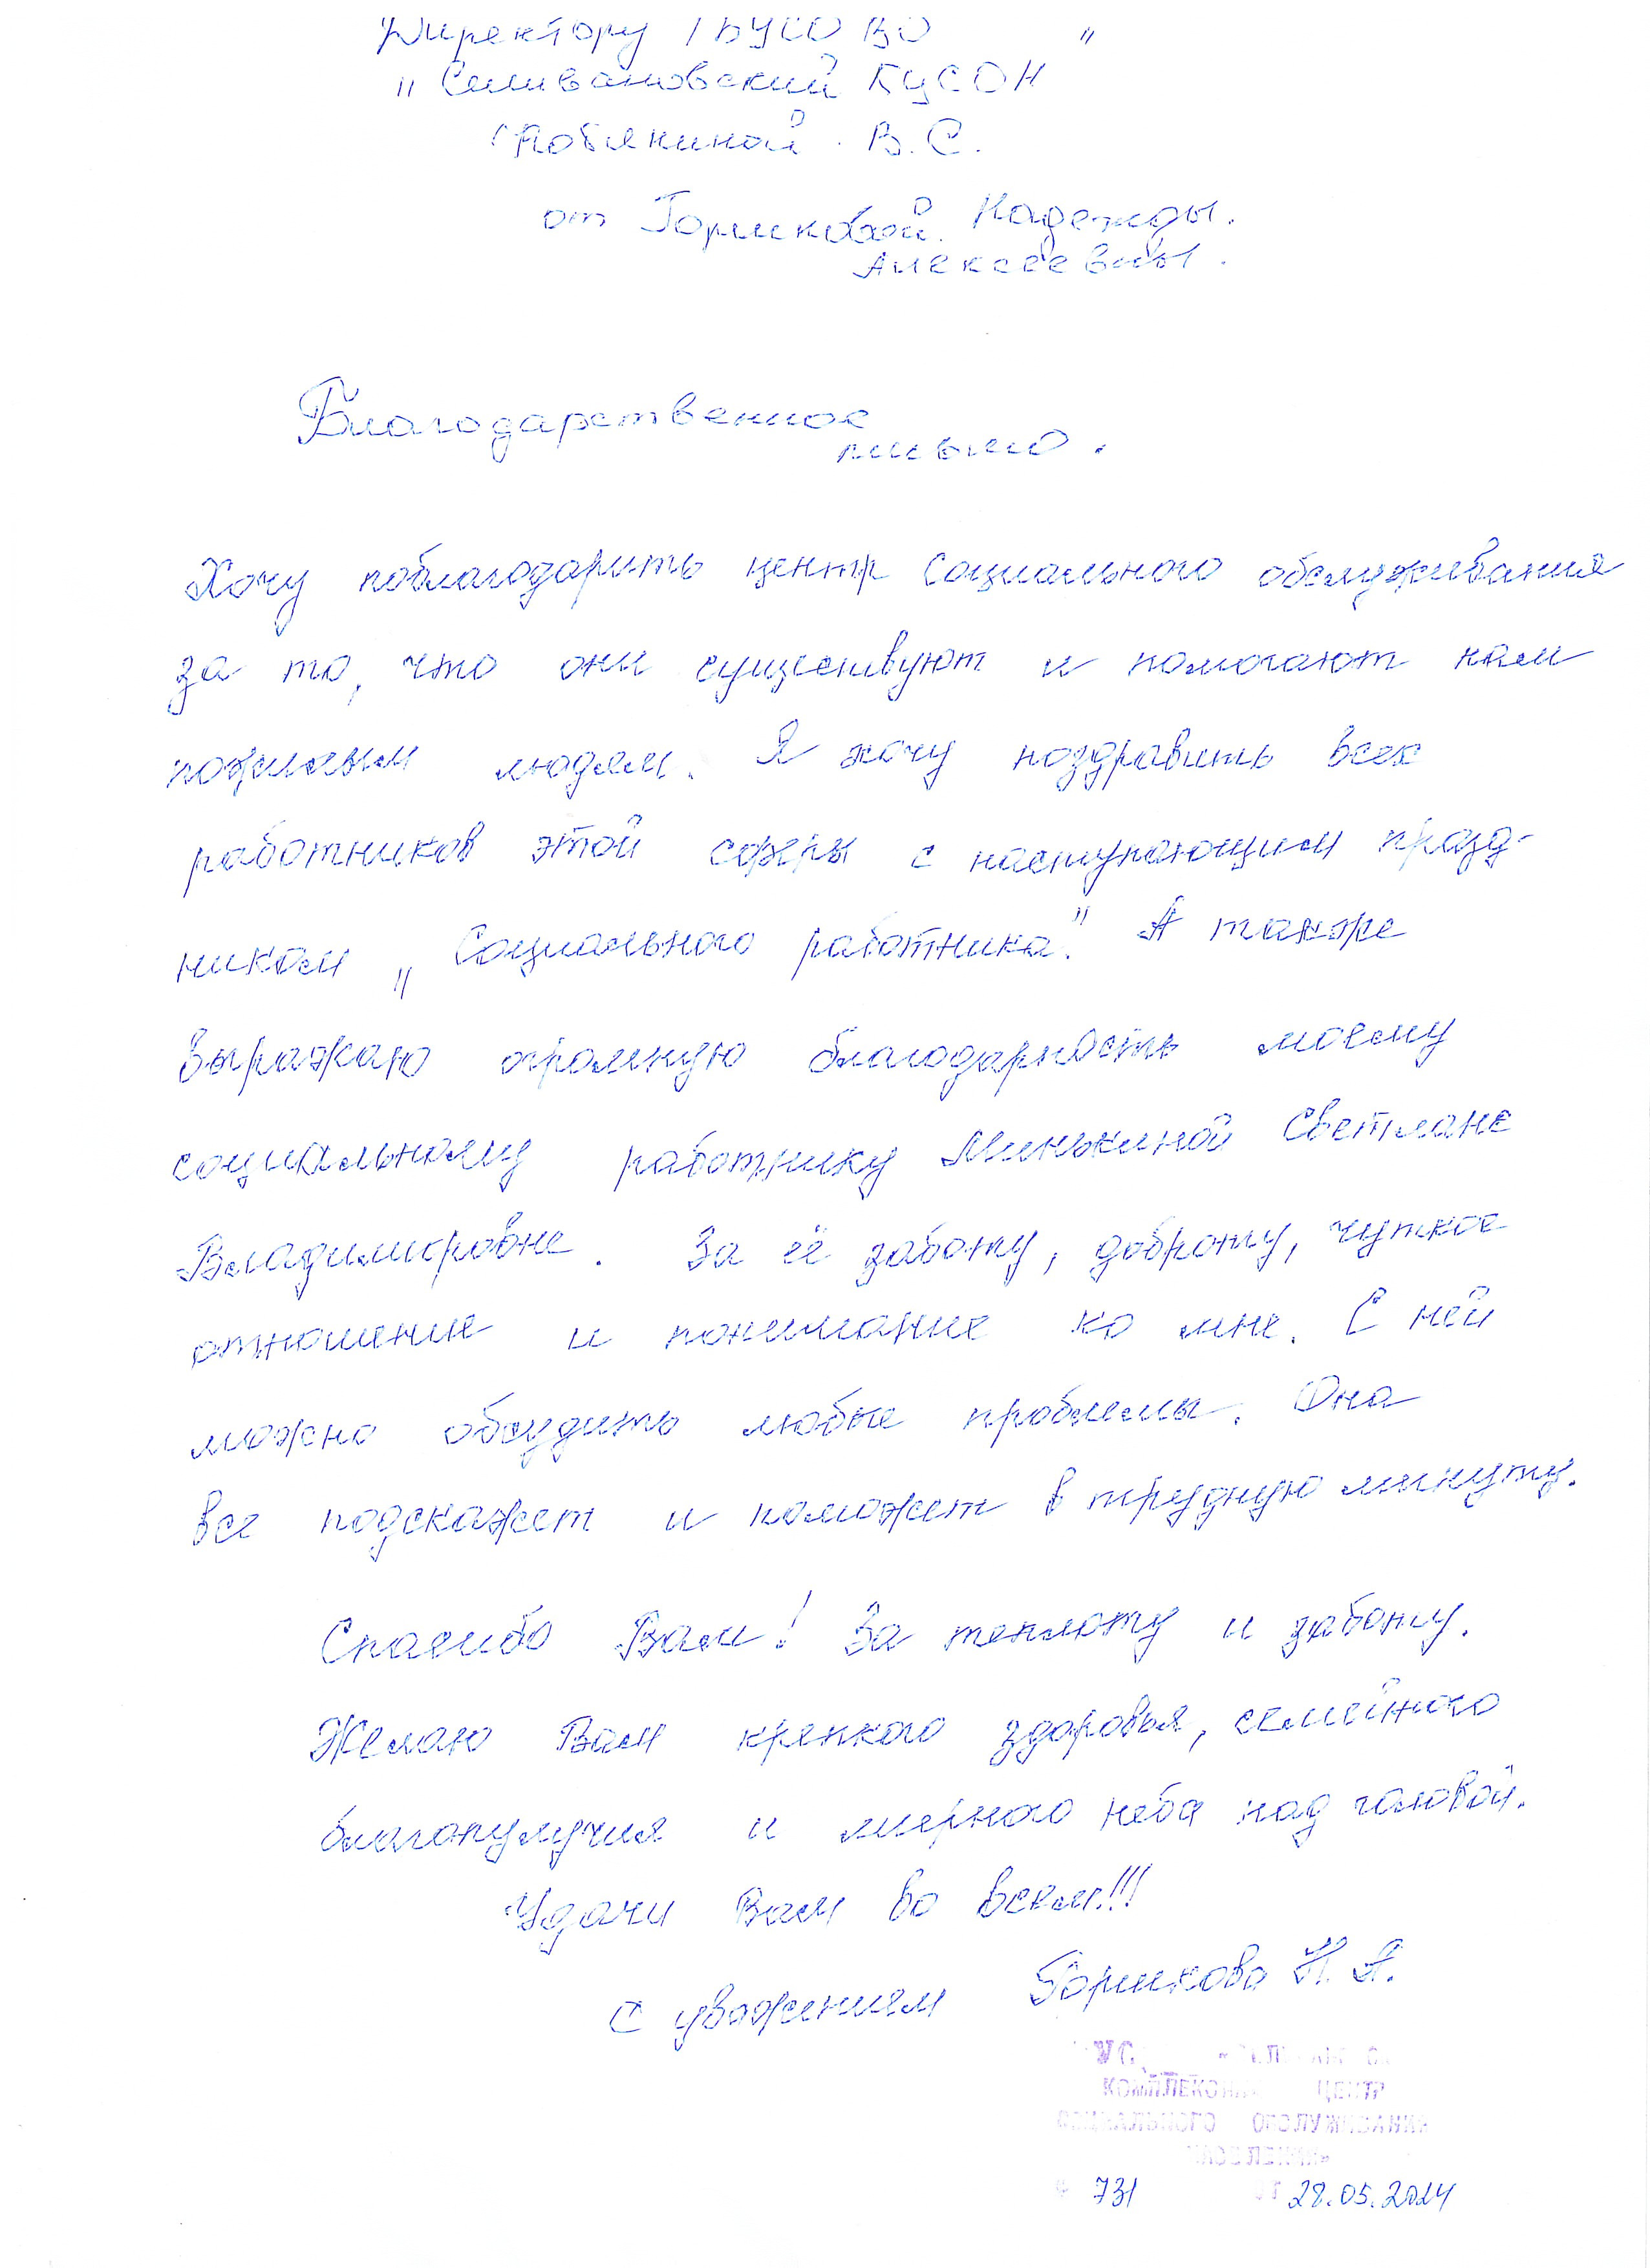 Директору ГБУСО ВО
"Селивановский КЦСОН"
В.С.
от Горшковой Надежды.
Алексеевны.
Благодарственное
письмо.
Хочу поблагодарить центр социального обслуживания
за то, что они существуют и помогают нам
пожилым людям. Я хочу поздравить всех
работников этой сферы с наступающим празд-
ником „Социального работника". А также
выражаю огромную благодарность моему
социальному работнику Минькиной Светлане
Владимировне. За её заботу, доброту, чуткое
отношение и понимание ко мне. С ней
можно обсудить любые проблемы. Она
все подскажет и поможет в трудную минуту.
Спасибо Вам! За теплоту и заботу.
Желаю Вам крепкого здоровья, семейного
благополучия и мирного неба над головой.
Удачи Вам во всем!!!
С уважением Горшкова Н.А.
КОМПЛЕКСНЫЙ ЦЕНТР
СОЦИАЛЬНОГО ОБСЛУЖИВАНИЯ
НАСЕЛЕНИЯ»
731 28.05.2024